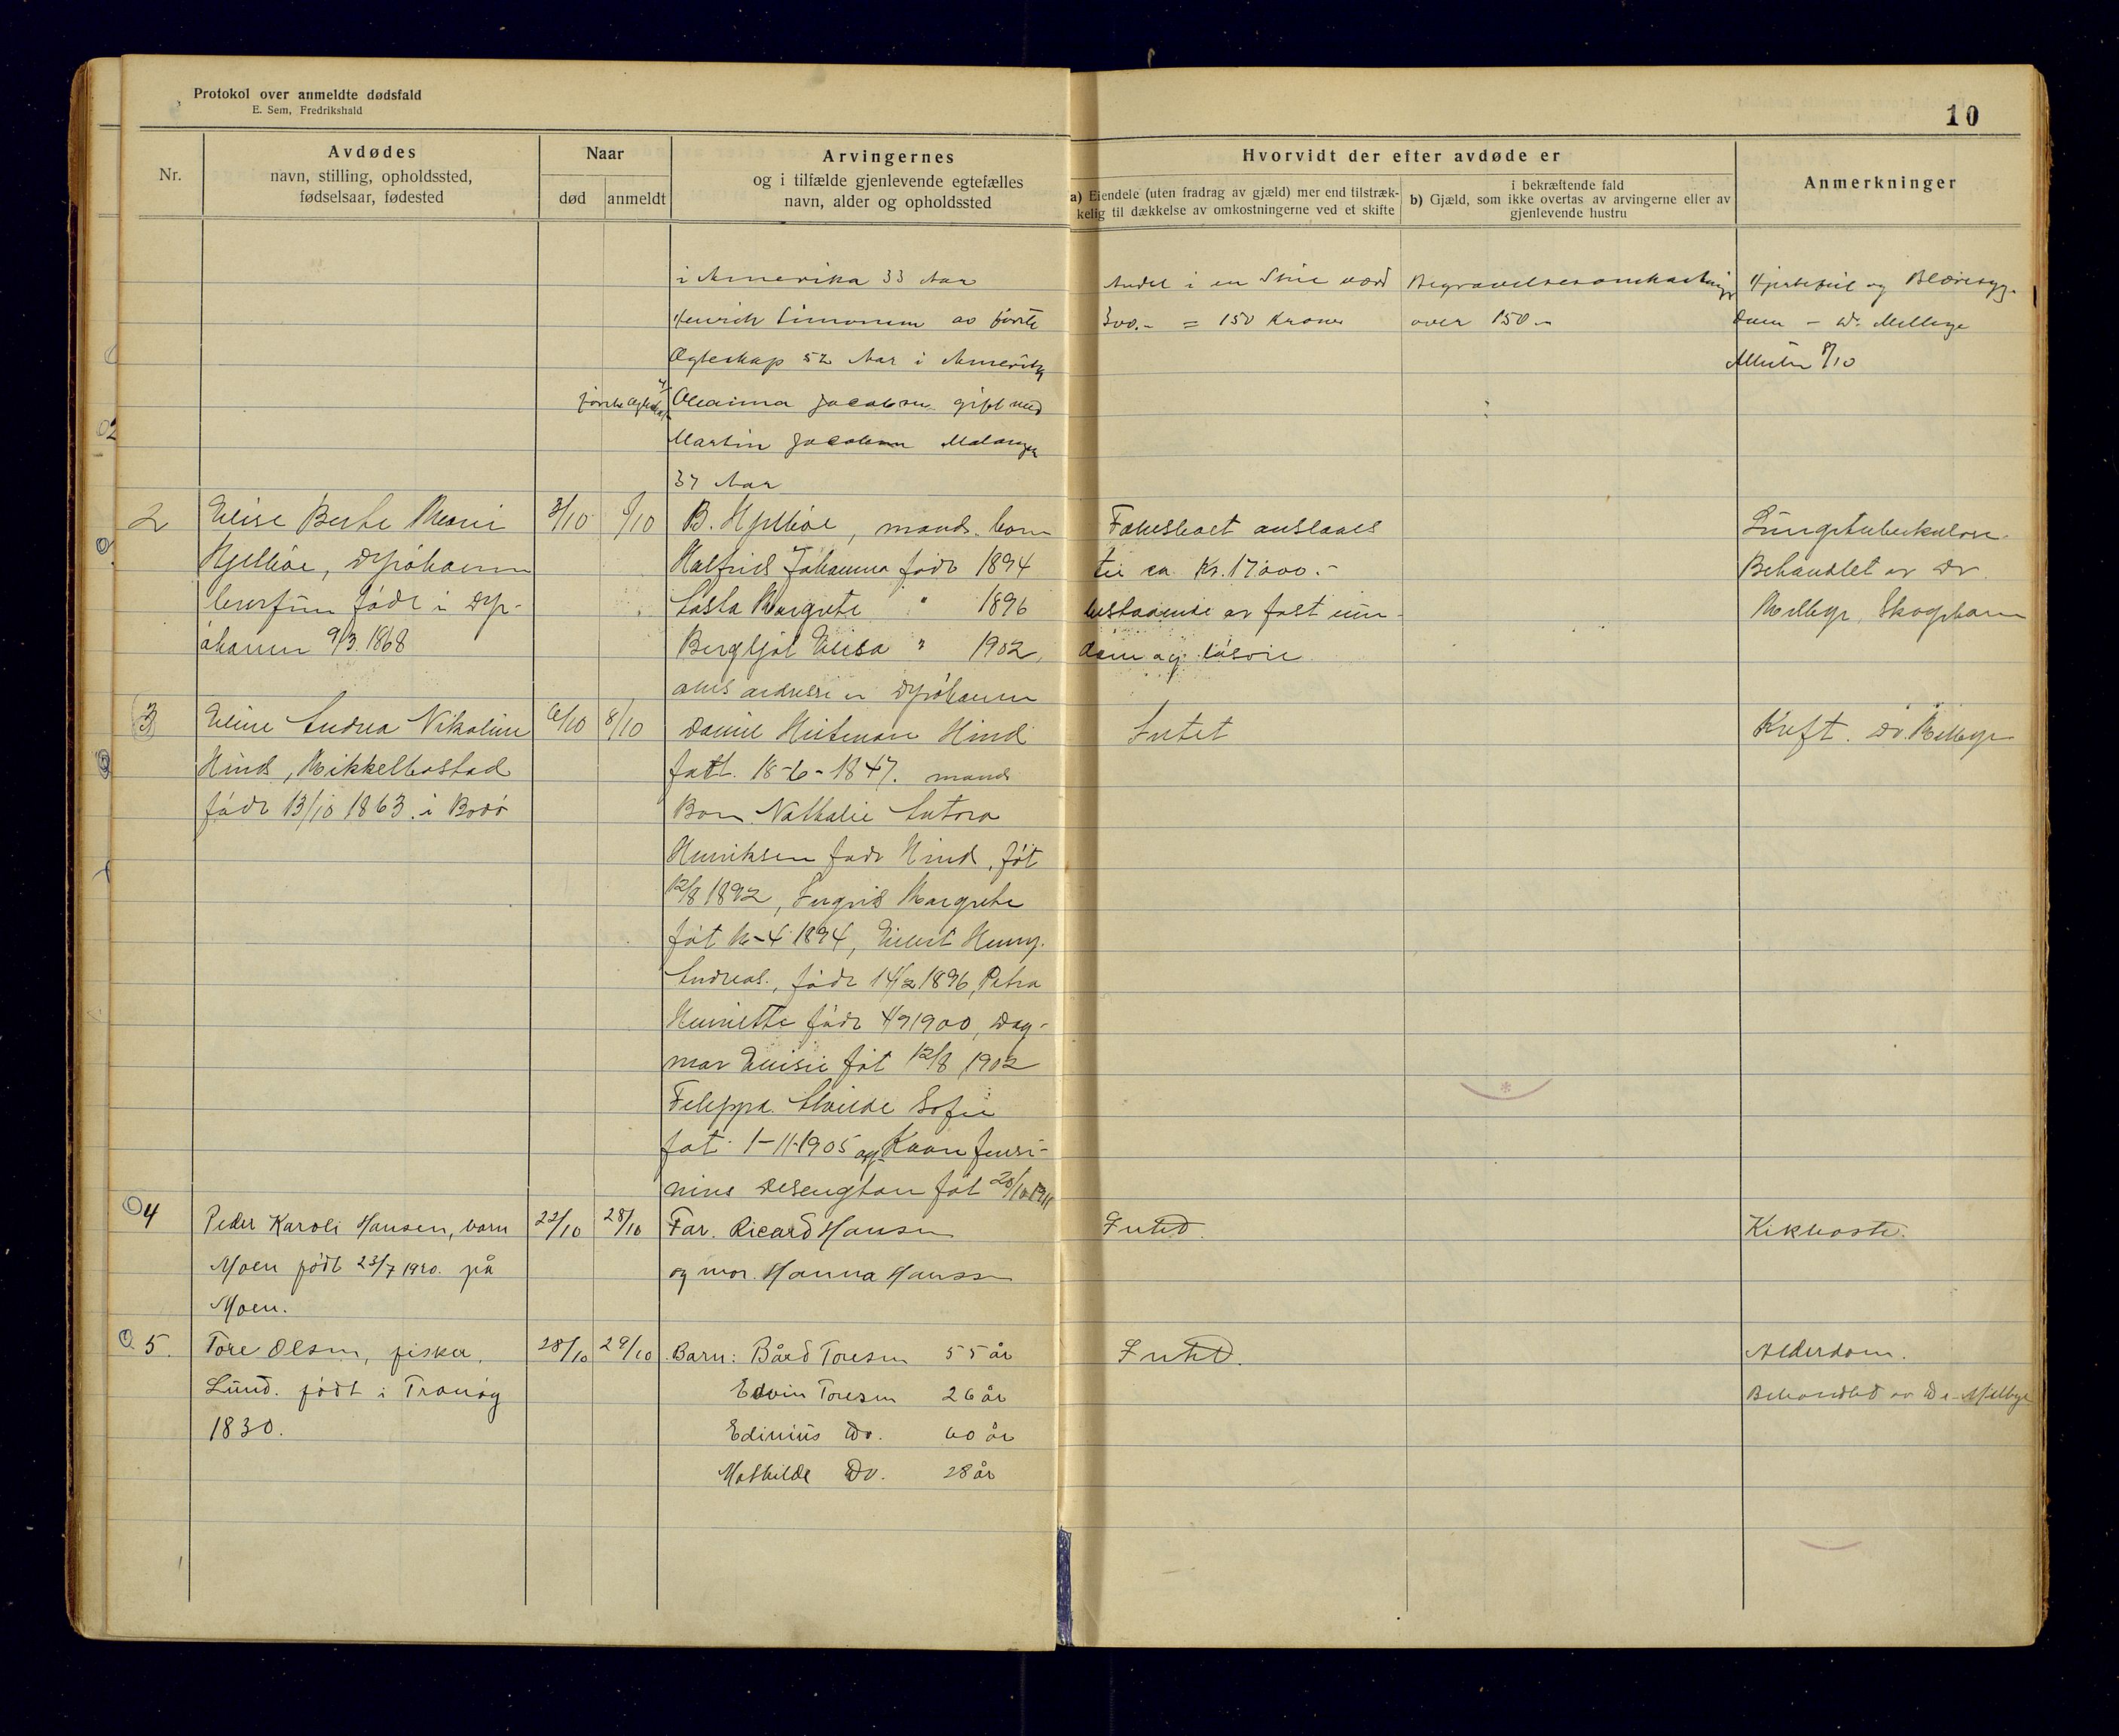 Protokol over anmeldte dødsfald
E. Sem, Fredrikshald
10
Nr.
Avdødes
navn, stilling, opholdssted,
fødselsaar, fødested
Naar
død
anmeldt
Arvingernes
og i tilfælde gjenlevende egtefælles
navn, alder og opholdssted
Hvorvidt der efter avdøde er
a) Eiendele (uten fradrag av gjæld) mer end tilstræk-
kelig til dækkelse av omkostningerne ved et skifte
i bekræftende fald
b) Gjæld, som ikke overtas av arvingerne eller av
gjenlevende hustru
Anmerkninger
i Amerika 33 Aar
Henrik Simonsen av første
Egteskap 52 Aar i Amerika
første Egteskap Oleanna Jacobsen gift med
Martin Jacobsen Malangen
37 Aar
Andel i en værd
300.- = 150 Kroner
Begravelsesomkostninger
over 150.-
Hjertefeil og Blæresyg-
dom - Dr. Melbye
Attest 8/10
2
Elise Berte Marie
Hjellbøe, Dyrøhavn
født i Dyr-
øhavn 9/3 1868
3/10
/10
B. Hjellbøe, mand. barn
Halfrid Johanna født 1894
Aasta Margrete " 1896
Bergljot Elisa " 1902,
alles adresse er Dyrøhavn
Fællesboet anslaaes
til ca. Kr. 17000.-
bestaaende av fast eien-
dom og løsøre
Lungetuberkulose.
Behandlet av Dr.
Melbye, Skogshavn
3
Eline Andrea Nikoline
Hind, Mikkelbostad
født 13/10 1863 i Bodø
6/10
8/10
Daniel Hind
født. 18-6-1847. mand
Barn Nathalie Antora
Henriksen født Hind, føt
12/8 1892, Ingrid Margrete
føt 16-4 1894, Eilert Henry
Andreas, født 14/2 1896, Petra
Henriette født 4/9 1900, Dag-
mar føt 12/8 1902
Filippa Alvilde Sofie
føt 1-11-1905 og Kaan Jensi-
nius føt 20/10 1911
Intet
Kreft. Dr. Melbye
4
Peder Karoli Hansen, barn
Moen født 23/7 1920. på
Moen.
22/10
28/10
Far. Ricard Hansen
og mor. Hanna Hansen
Intet.
Kikhoste.
5.
Tore Olsen, fisker,
Lund. født i Tranøy
1830.
28/10
29/10
Barn: Bård Toresen 55 år
Edvin Toresen 26 år
Edinius Do. 60 år
Mathilde Do. 28 år
Intet.
Alderdom.
Behandlet av Dr. Melbye